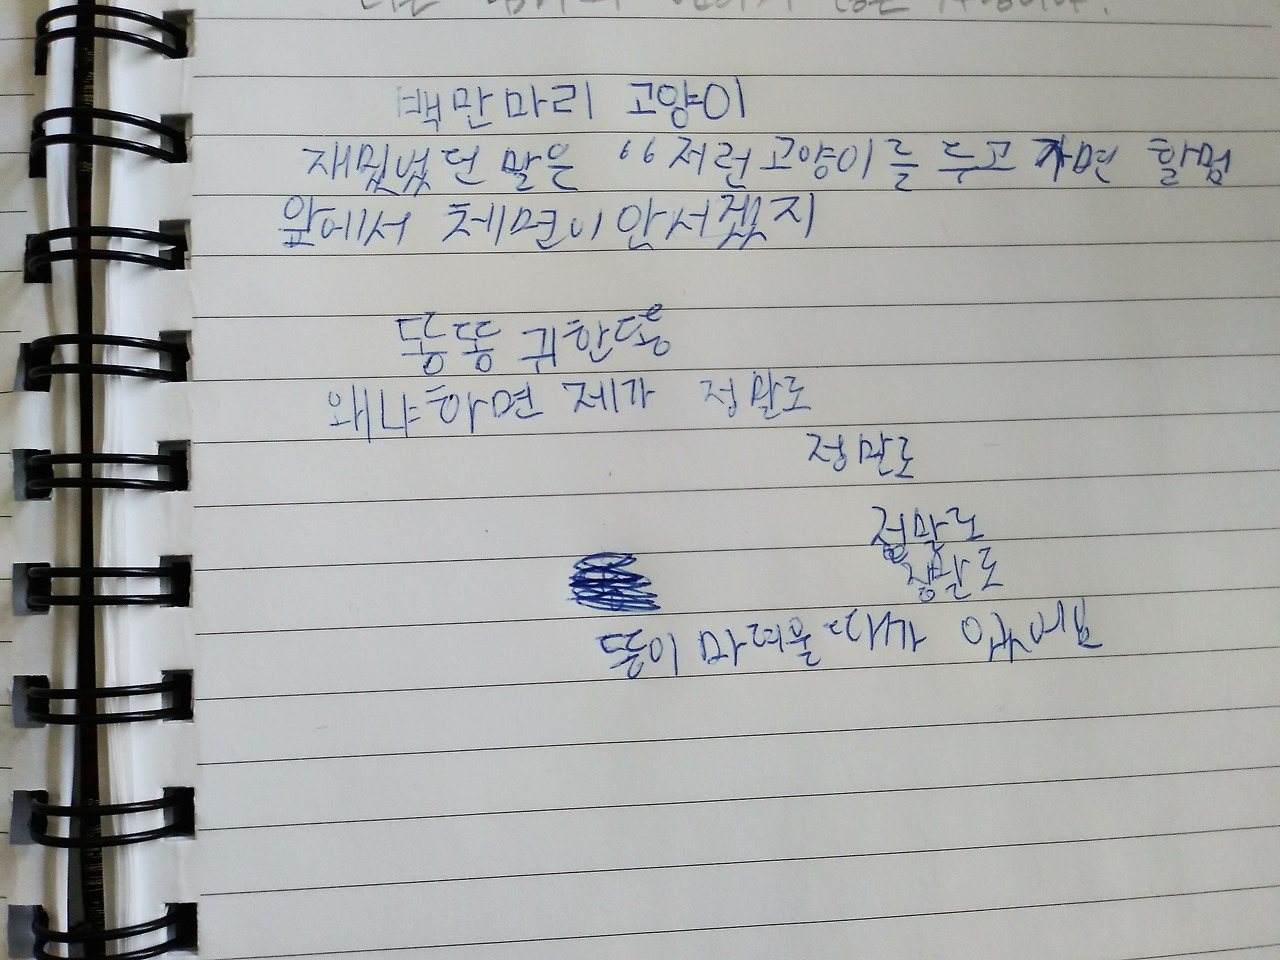 백만마리 고양이
재밌었던 말은 “저런 고양이를 두고 가면 할멈
앞에서 체면이 안서겠지
똥똥 귀한똥
왜냐하면 제가 정말로
정말로
정말로
정말로
똥이 마려울 때가